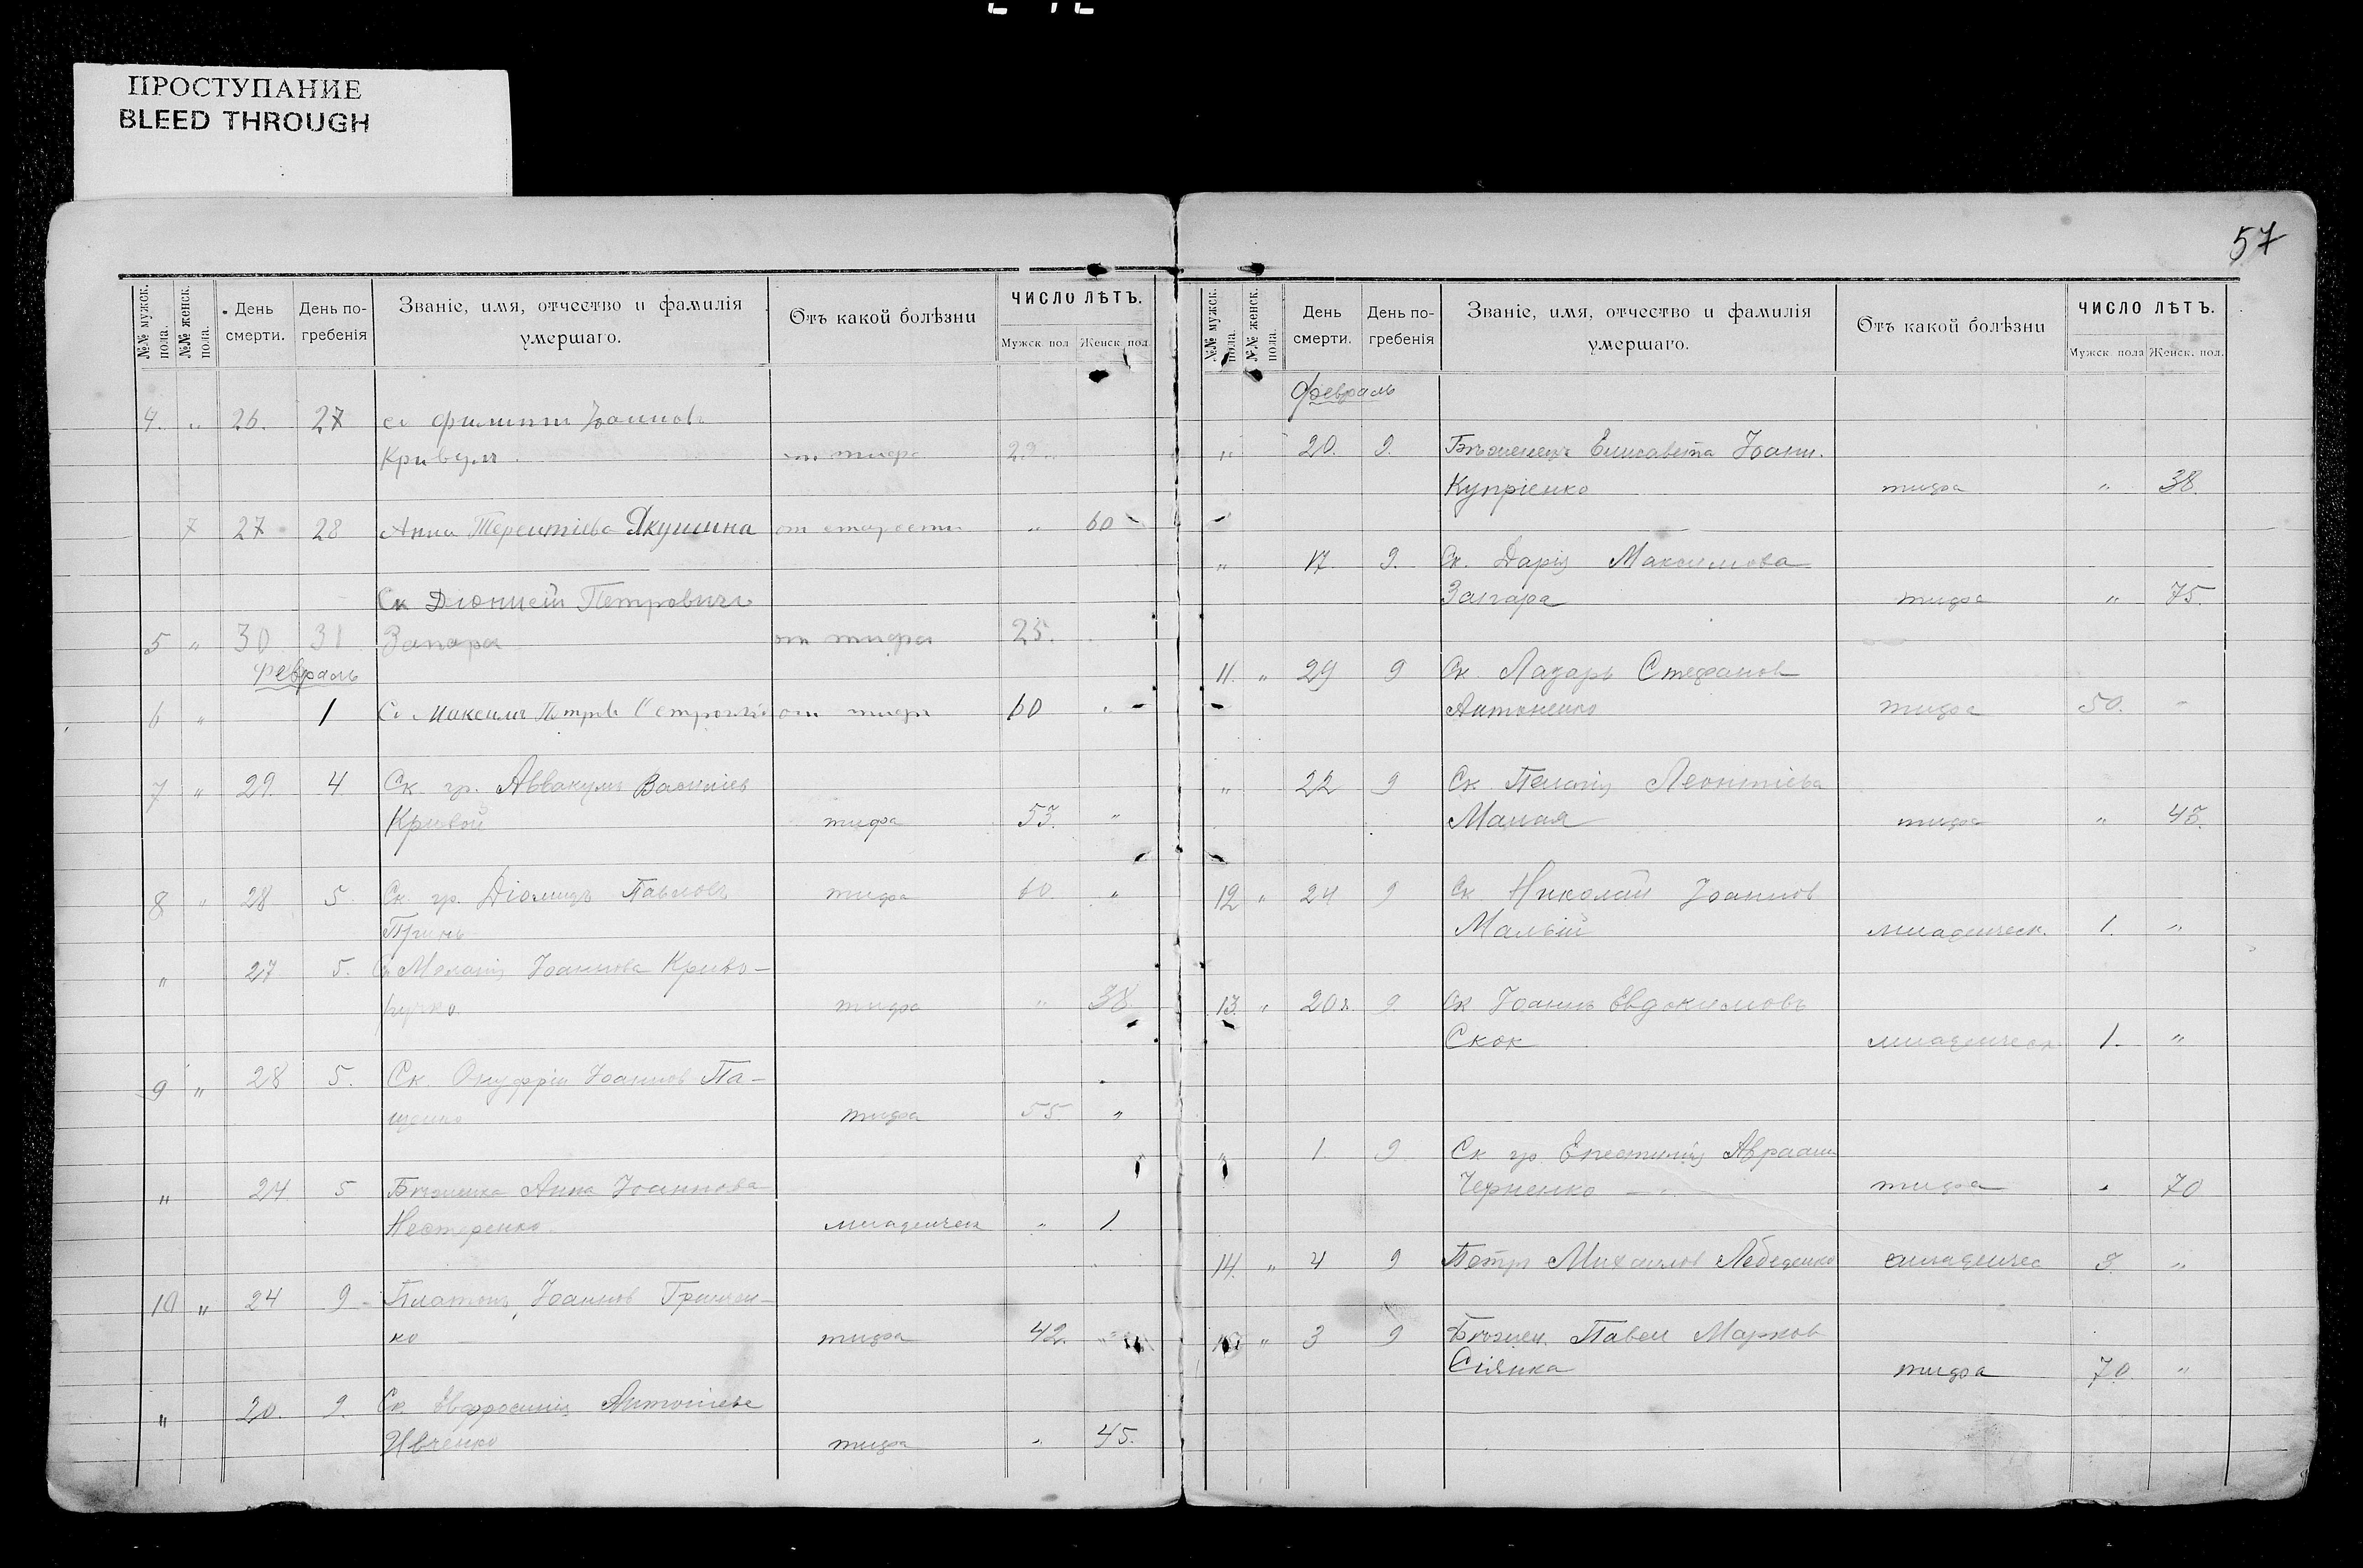 ПРОСТУПАНИЕ
BLEED THROUGH
57
№№ мужск. пола.
№№ женск. пола.
День смерти.
День погребенія
Званіе, имя, отчество и фамилія умершаго.
Отъ какой болѣзни
ЧИСЛО ЛѢТЪ.
Мужск. пол Женск. пол.
4. " 26. 27 Филиппъ Іоанновъ
от тифа
7 27 28 Анна Терентіева Якушина от старости " 60
Ск Діонисій Петровичъ
5 " 30 31 Запара от тифа 25.
Февраль
6 " 1 Максимъ от тифа 60 "
7 " 29. 4. Ск. гр. Аввакумъ Василіев
Кривой тифа 53. "
8 " 28 5. Ск. гр. Діомидъ Павловъ тифа 60. "
" 27 5. Меланія Іоаннова Криво-
ручко тифа " 38.
9 " 28 5. Ск. Онуфрій Іоаннов Па-
щенко тифа 55. "
" 24 5 Бѣженка Анна Іоаннова
Нестеренко. младенческ " 1
10 " 24 9 Платонъ Іоаннов Гринчен-
ко тифа 42. "
" 20. 9. Ск. Евфросинія Антоніева
Ивченко тифа " 45.
№№ мужск. пола.
№№ женск. пола.
День смерти.
День погребенія
Званіе, имя, отчество и фамилія умершаго.
Отъ какой болѣзни
ЧИСЛО ЛѢТЪ.
Мужск. пола Женск. пол.
Февраль
" 20. 9. Бѣженецъ Елисавета Іоанн.
Купріенко тифа " 38.
" 17. 9. Ск. Дарія Максимова
Запара тифа " 75.
11. " 29 9 Ск. Лазарь Стефанов
Антоненко тифа 50. "
" 22 9 Ск. Пелагія Леонтіева
Малая тифа "
12 " 24 9 Ск. Николай Іоаннов
Малый младенческ. 1. "
13. " 20 9. Ск Іоаннъ Евдокимовъ
Скок младенческ 1. "
" 1. 9. Ск гр. Авраам
Черненко тифа " 70
14. " 4 9 Петръ Михаилов Лебеденко младенчес 3. "
" 3 9 Бѣжен. Павел Марков
тифа 70. "